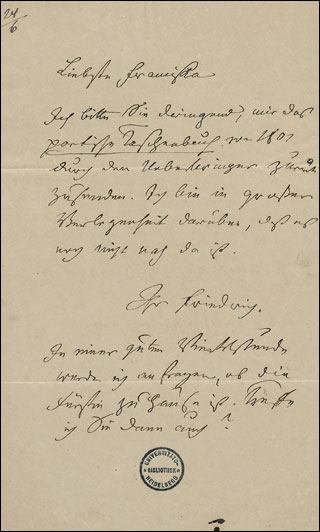 24/6
Liebste Franciska
Ich bitte Sie dringend, mir das
poetische Taschenbuch von 1801
durch den Ueberbringer zurück
zusenden. Ich bin in großer
Verlegenheit darüber, daß es
noch nicht nach da ist.
Ihr Friedrich.
In einer guten Viertelstunde
werde ich anfragen, ob die
Fürstin zu Hause ist. Treffe
ich Sie dann auch?
UNIVERSITÄTS-
BIBLIOTHEK
HEIDELBERG